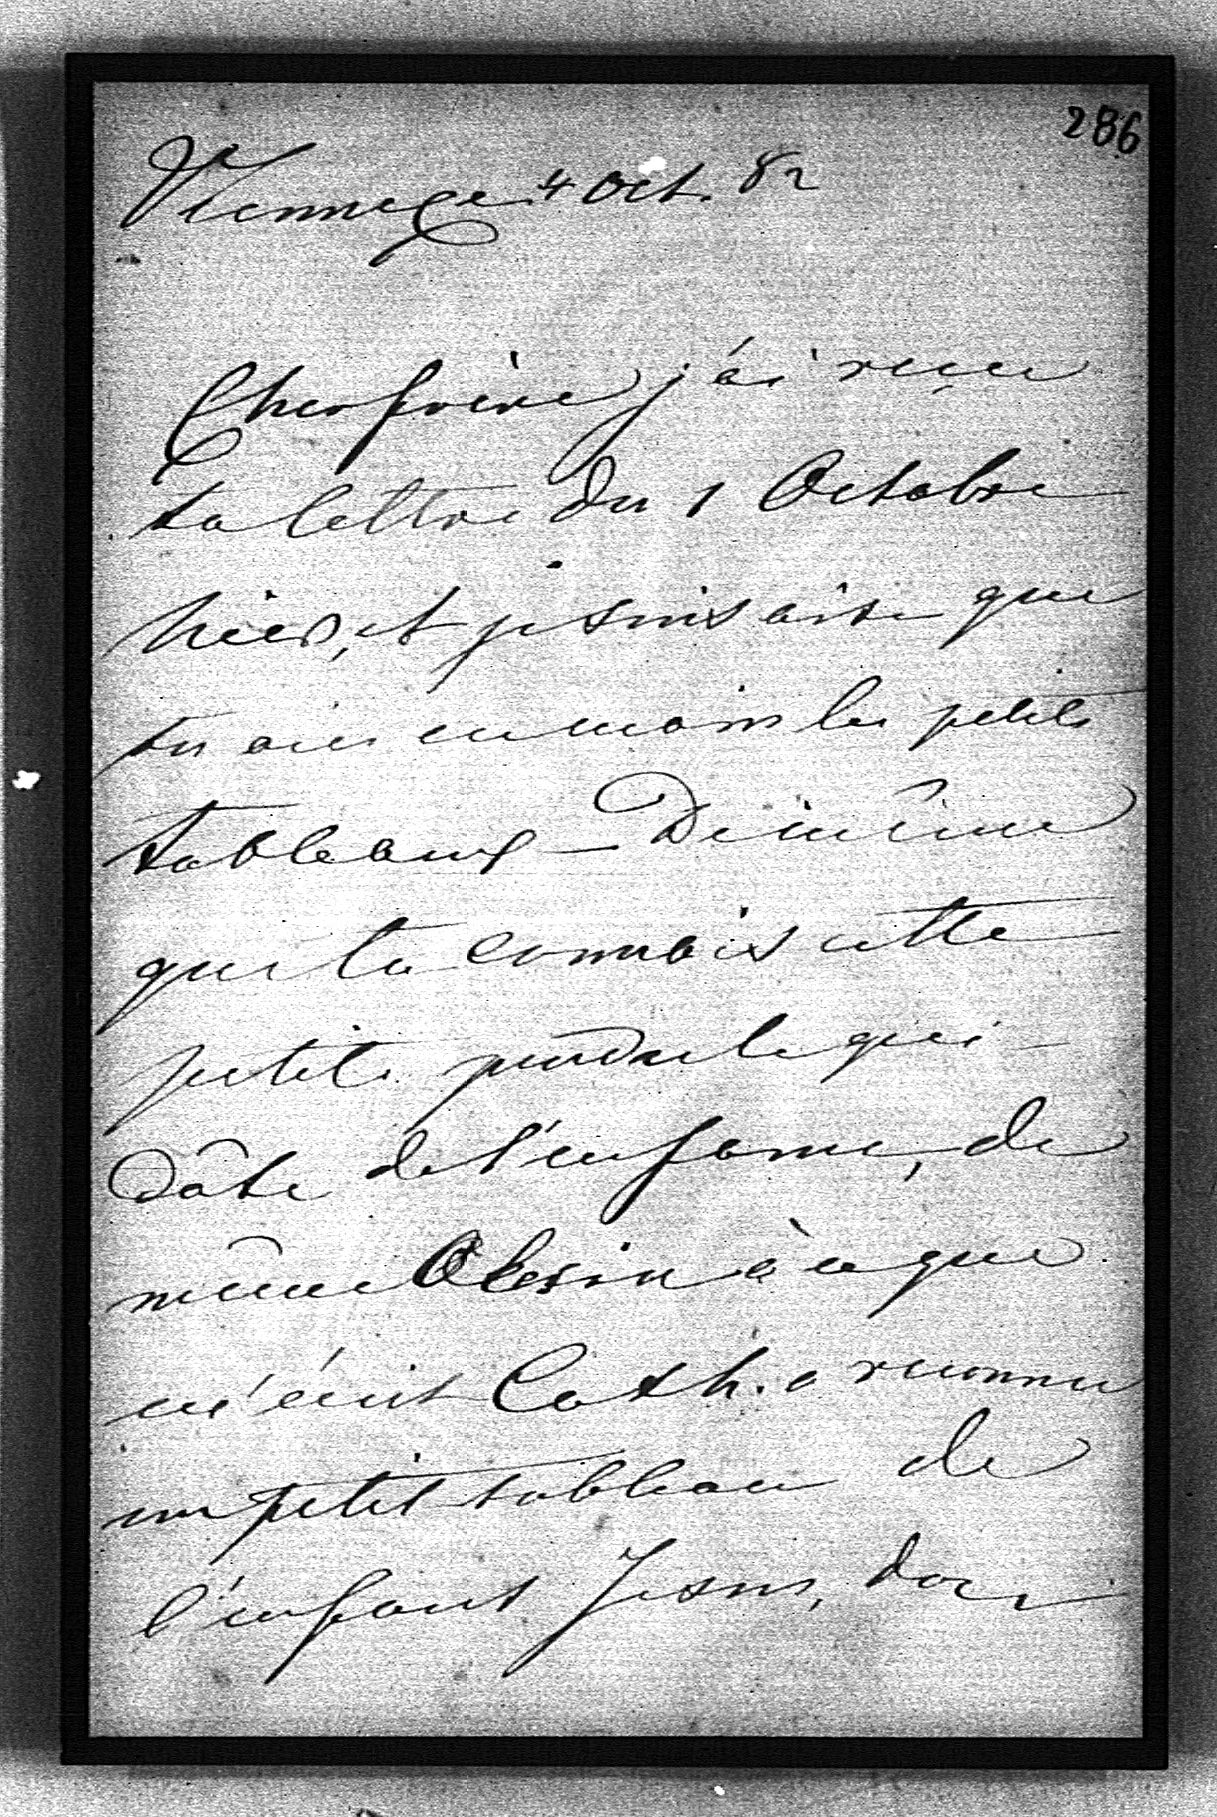 286
4 Oct. 82
Cher frère j'ai reçu
ta lettre du 1 Octobre
hier, et je suis aise que
tu aies en main les petits
tableaux — De même
que tu connais cette
petite pendule qui
dâte de l'enfance, de
même à ce que
m'écrit Cath. a reconnu
un petit tableau de
l'enfant Jesus, dor